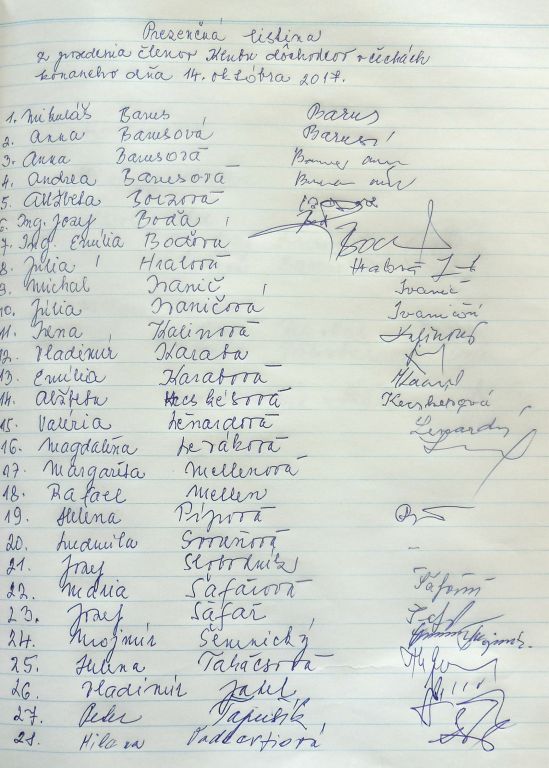 Prezenčná listina
z posedenia členov Klubu dôchodcov v Čechách
konaného dňa 14. októbra 2017.
1. Mikuláš Barus Barus
2. Anna Barusová Barusová
3. Anna Barusová
4. Andrea Barusová
5. Alžbeta Borzová
6. Ing. Jozef Boďa
7. Ing. Emília Boďová Bod
8. Júlia Hralová Hralová J
9. Michal Ivanič Ivanič
10. Júlia Ivaničová Ivaničová
11. Irena Kalinová Kalinová
12. Vladimír Karaba
13. Emília Karabová
14. Alžbeta Kecskésová Kecskesová
15. Valéria Lénardová Lenardová
16. Magdaléna Lezáková
17. Margaréta Mellenová
18. Rafael Mellen
19. Helena Pípová
20. Ludmila
21. Jozef Slobodník
22. Mária Šafářová
23. Jozef Šafář
24. Mojmír Semnický
25. Helena Takácsová
26. Vladimír
27. Peter Ťapušík
28. Milena